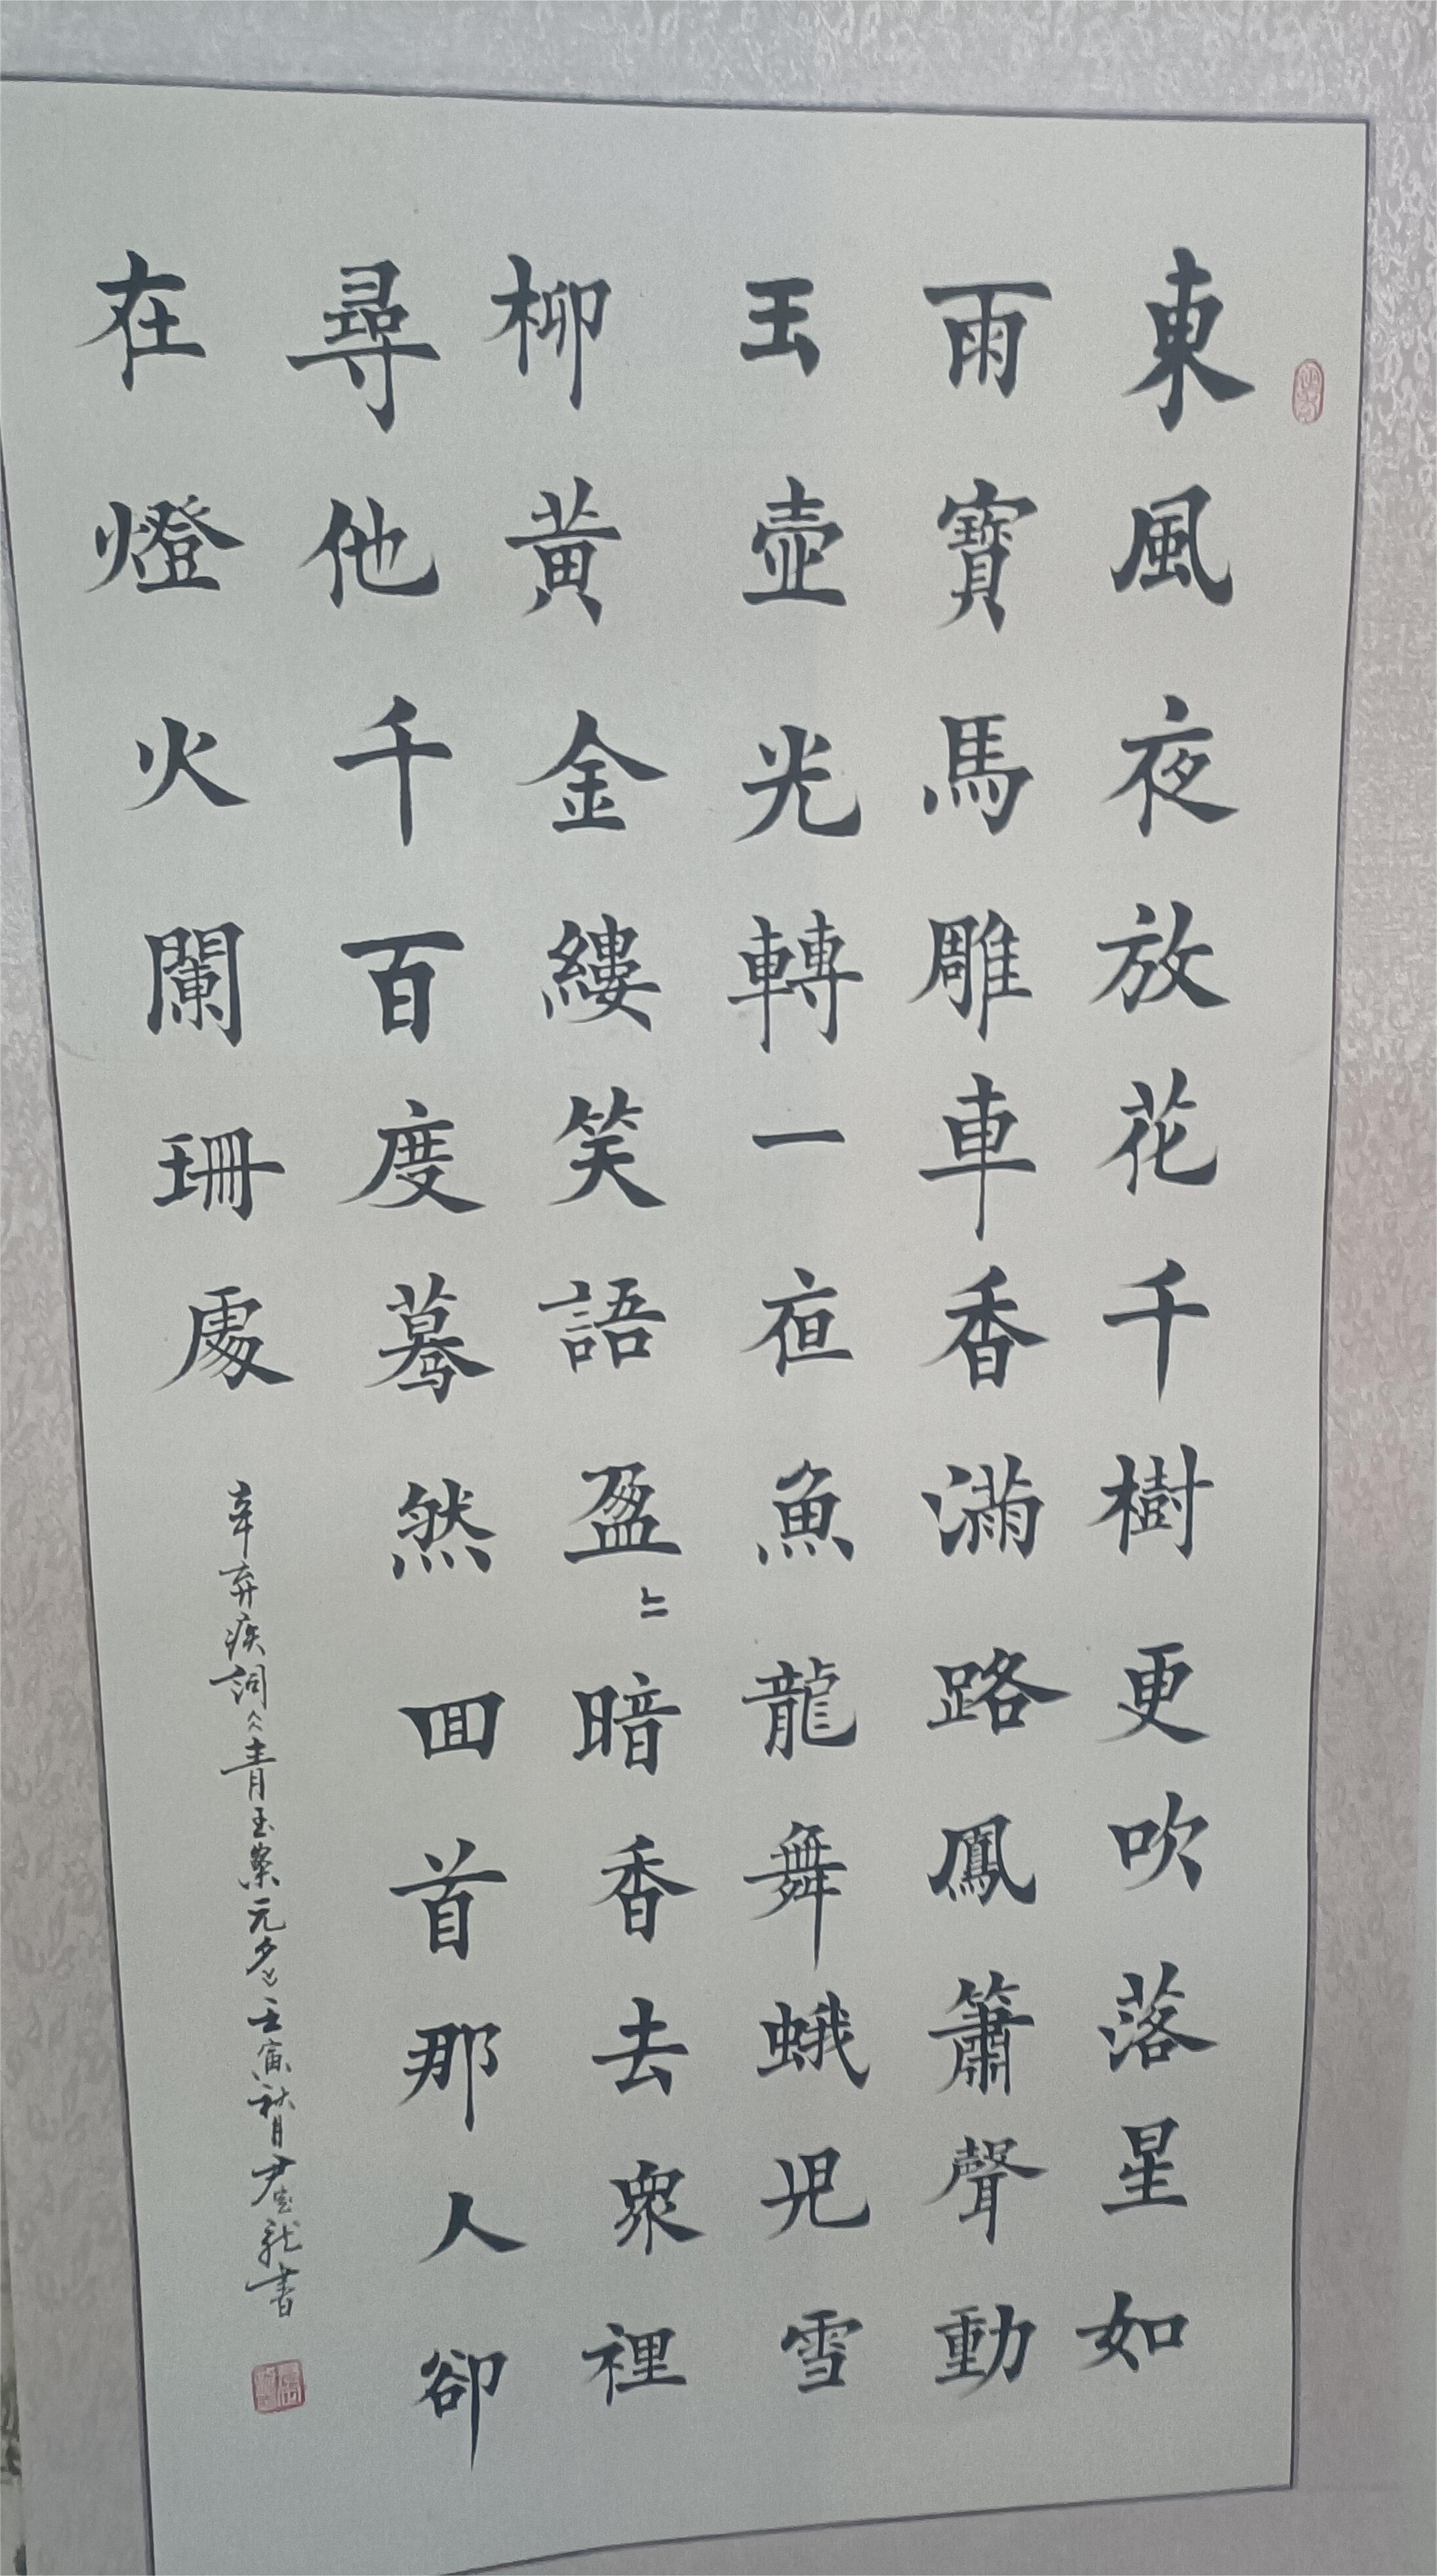 東風夜放花千樹更吹落星如
雨寶馬雕車香滿路鳳簫聲動
玉壺光轉一夜魚龍舞蛾児雪
柳黃金縷笑語盈〻暗香去衆裡
尋他千百度驀然回首那人卻
在燈火闌珊處
辛弃疾詞人青玉案元夕〻壬寅秋月尹書